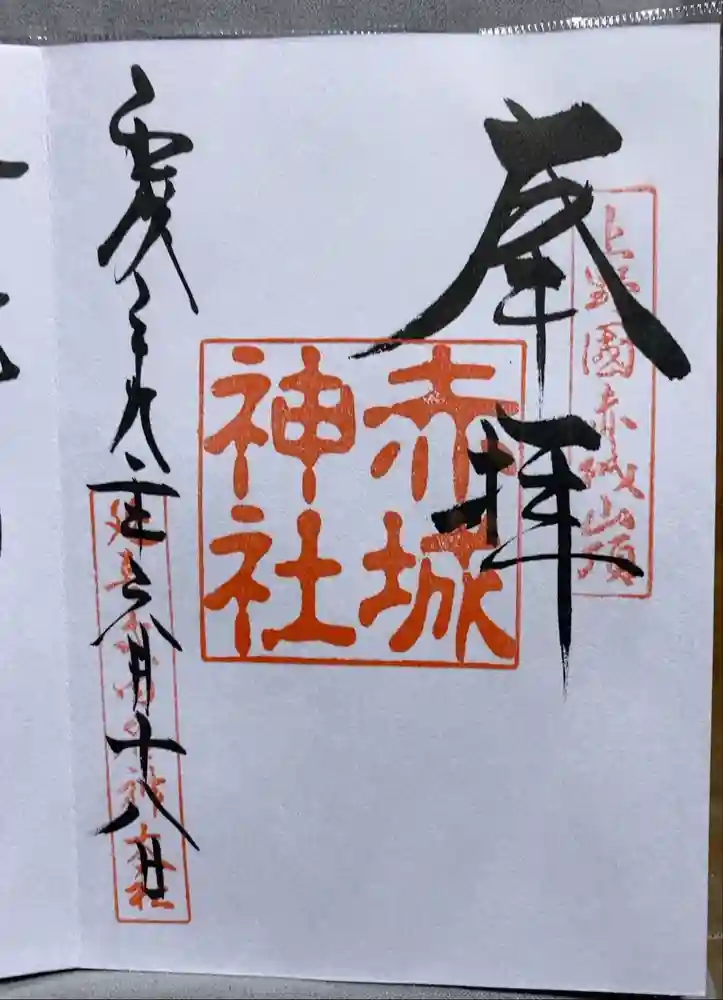 奉拝
上野國赤城山頂
赤城神社
平成二十九年六月十八日
延喜式内名神大社